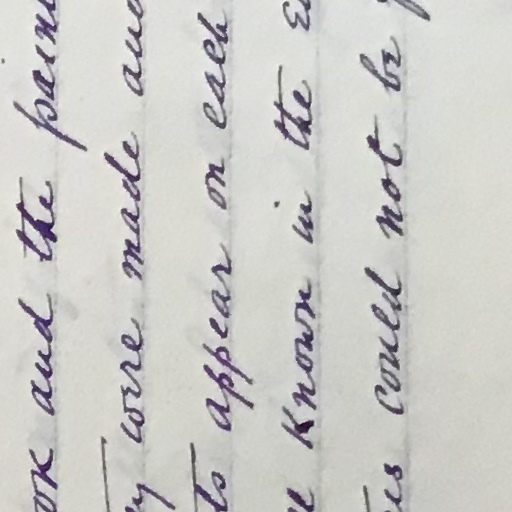 ook and the pain
ey were made and
ts appear on each
Known in the
could not be